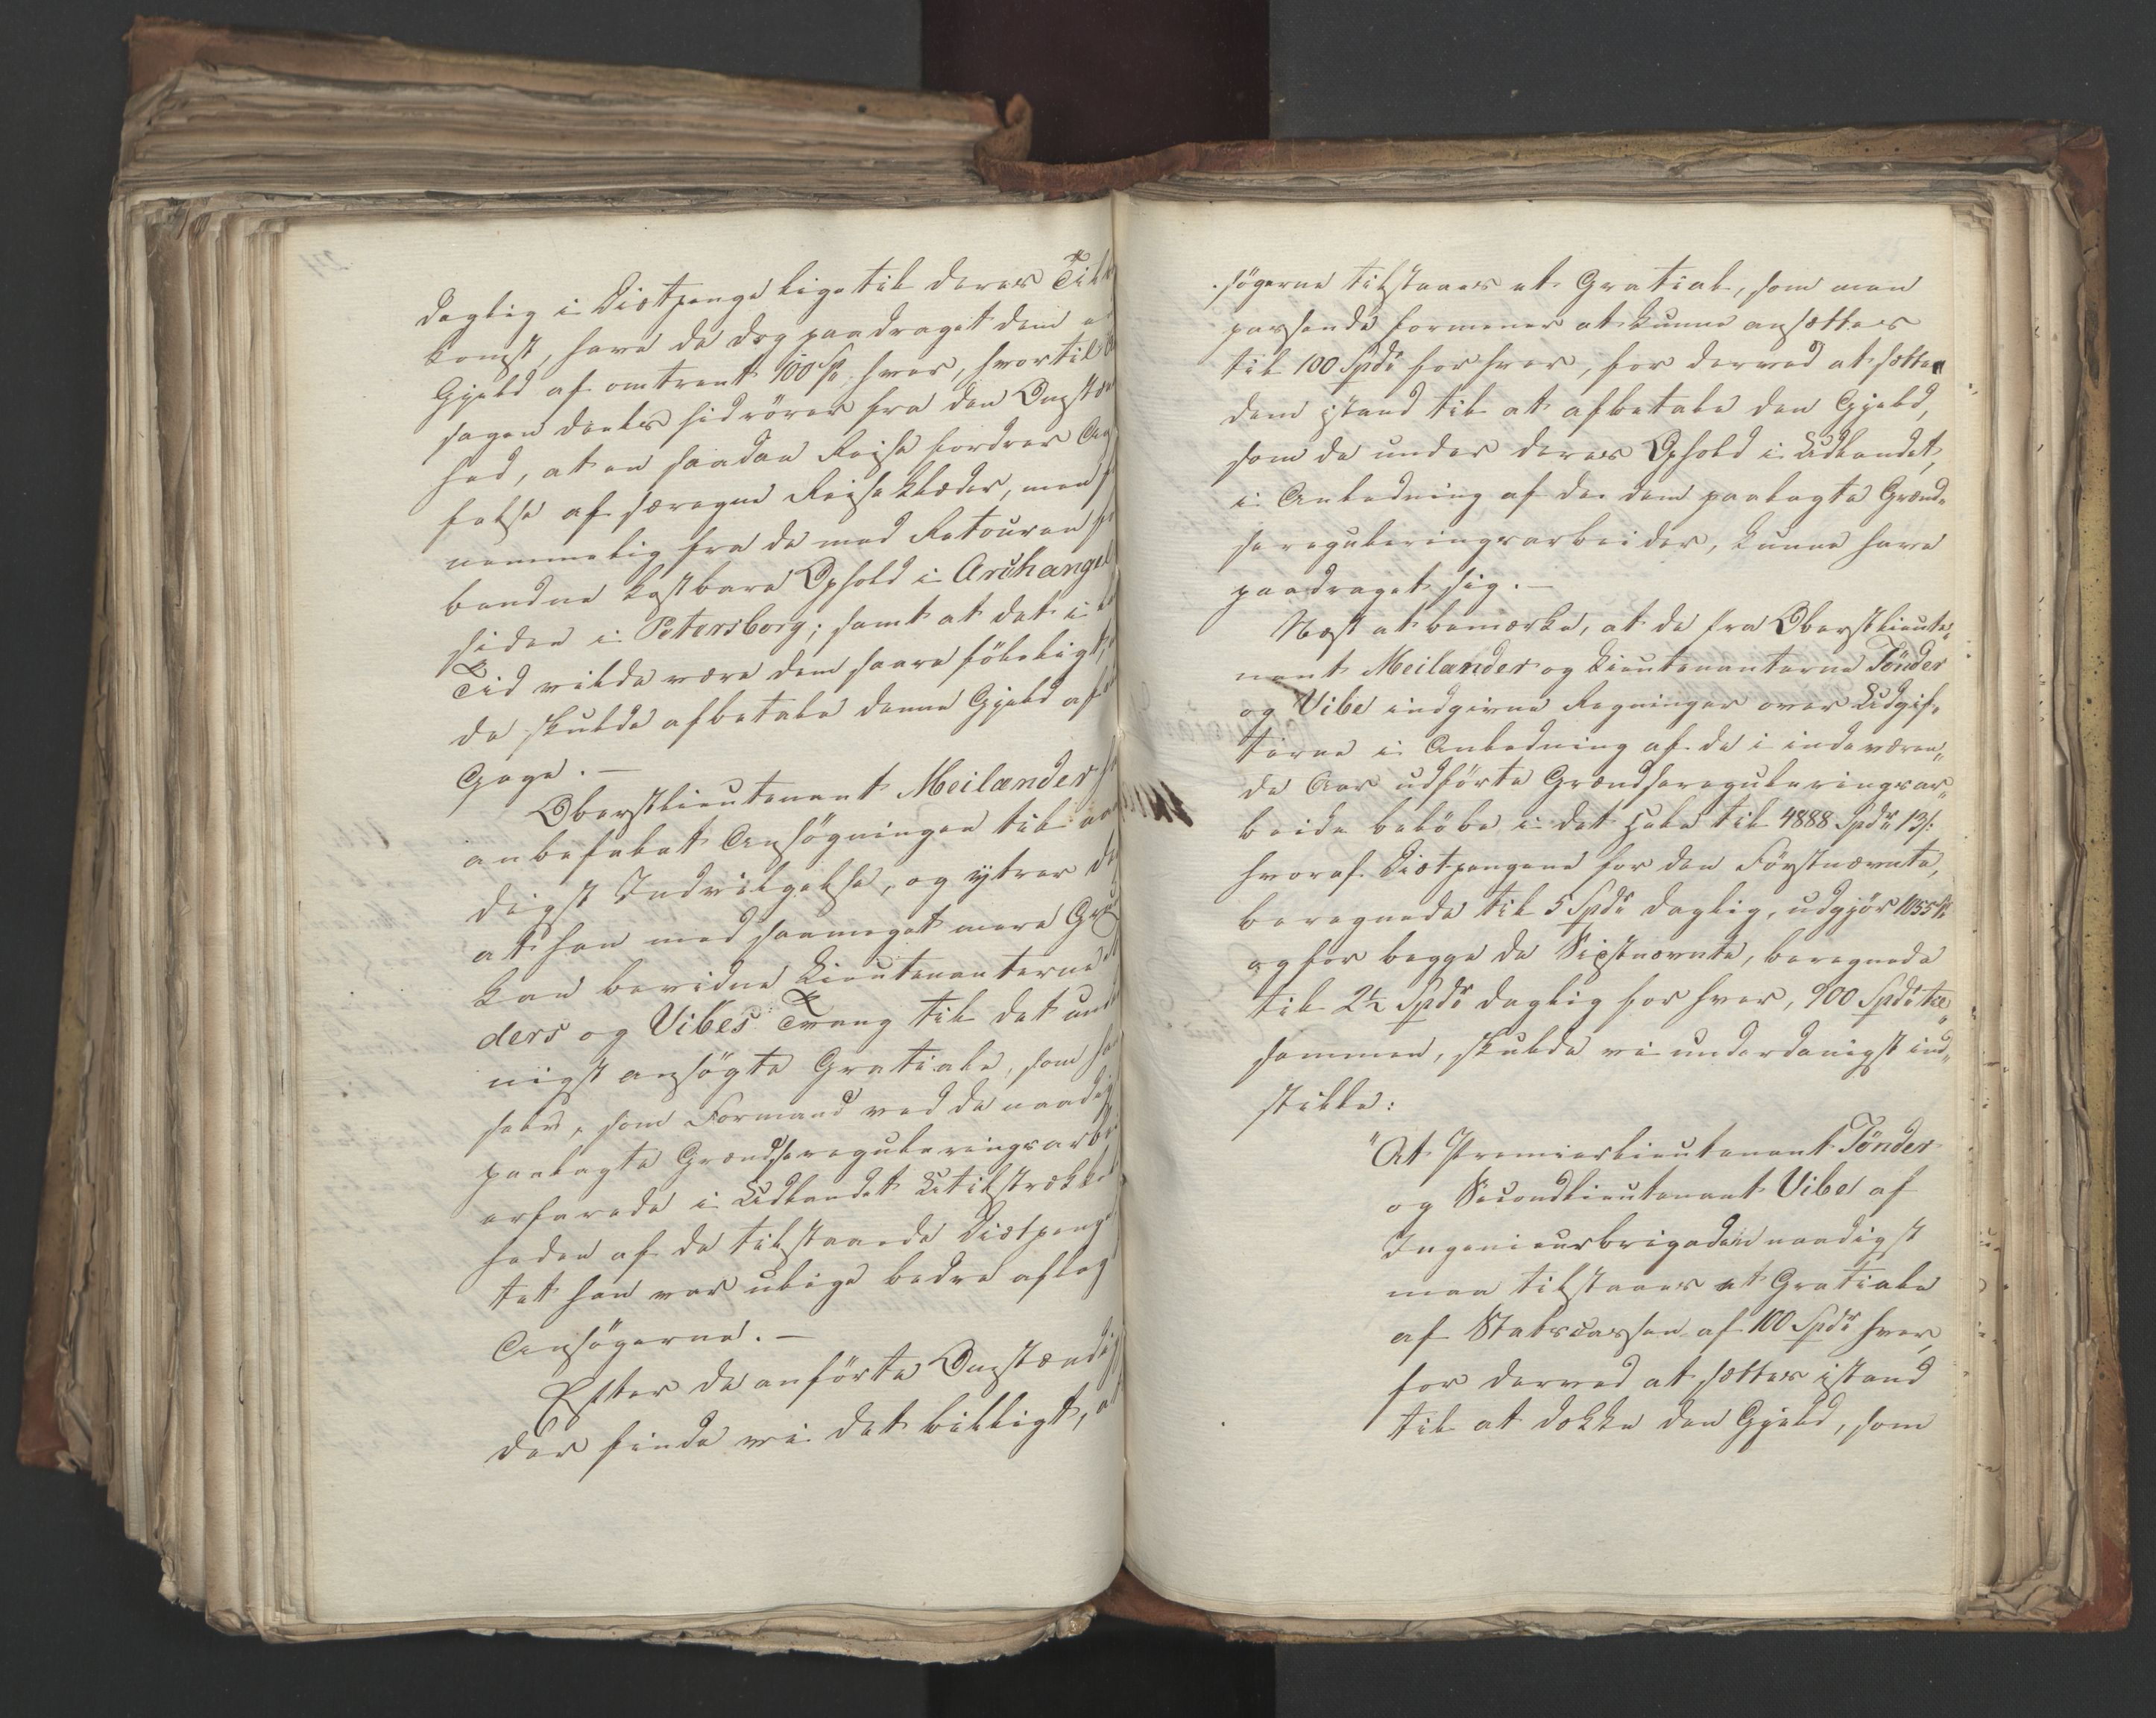 daglig i Diætpenge lige til deres Til
komst, have de dog paadraget dem e
Gjeld af omtrent 100 Sp hver, hvortil
sagen deels hidrører fra den Omstæn
hed, at en saadan Reise fordrer An
felse af særegne Reiseklæder, men
nemmelig fra de med Retouren
bundne kostbare Ophold i Archangel
siden i Petersborg; samt at det i
Tid vilde være dem saare føleligt,
de skulde afbetale denne Gjeld af
Gage. —
Oberstlieutenant Meilænder
anbefalet Ansøgningen til
digst Indvilgelse, og ytrer
at han med saameget mere Gr
kan bevidne Lieutenanterne
ders og Vibes Trang til det un
nigst ansøgte Gratiale, som
selv, som Formand ved de naadi
paalagte Grændsereguleringsarb
erfarede i Udlandet Utilstrække
heden af de tilstaaede Diætpeng
tet han var ulige bedre aflag
Ansøgerne. —
Efter de anførte Omstændi
der finde vi det billigt,
søgerne tilstaaes et Gratial, som man
passende formener at kunne ansættes
til 100 Spdr for hver, for derved at sætte
dem istand til at afbetale den Gjeld,
som de under deres Ophold i Udlandet,
i Anledning af de dem paalagte Grænd-
sereguleringsarbeider, kunne have
paadraget sig. —
Næst at bemærke, at de fra Oberstlieute-
nant Meilænder og Lieutenanterne Tønder
og Vibe indgivne Regninger over Udgif-
terne i Anledning af de i indeværen-
de Aar udførte Grændsereguleringsar-
beide beløbe i det Hele til 4888 Spdr 13/:
hvoraf Diætpengene for den Førstnævnte,
beregnede til 5 Spdr daglig, udgjør 1055 Sp
og for begge de Sidstnævnte, beregnede
til 2½ Spdr daglig for hver, 900 Spdr til-
sammen, skulde vi underdanigst ind-
stille:
"At Premierlieutenant Tønder
og Secondlieutenant Vibe af
Ingenieurbrigaden naadigst
maa tilstaaes et Gratiale
af Statscassen af 100 Spdr hver,
for derved at sættes istand
til at dække den Gjeld, som